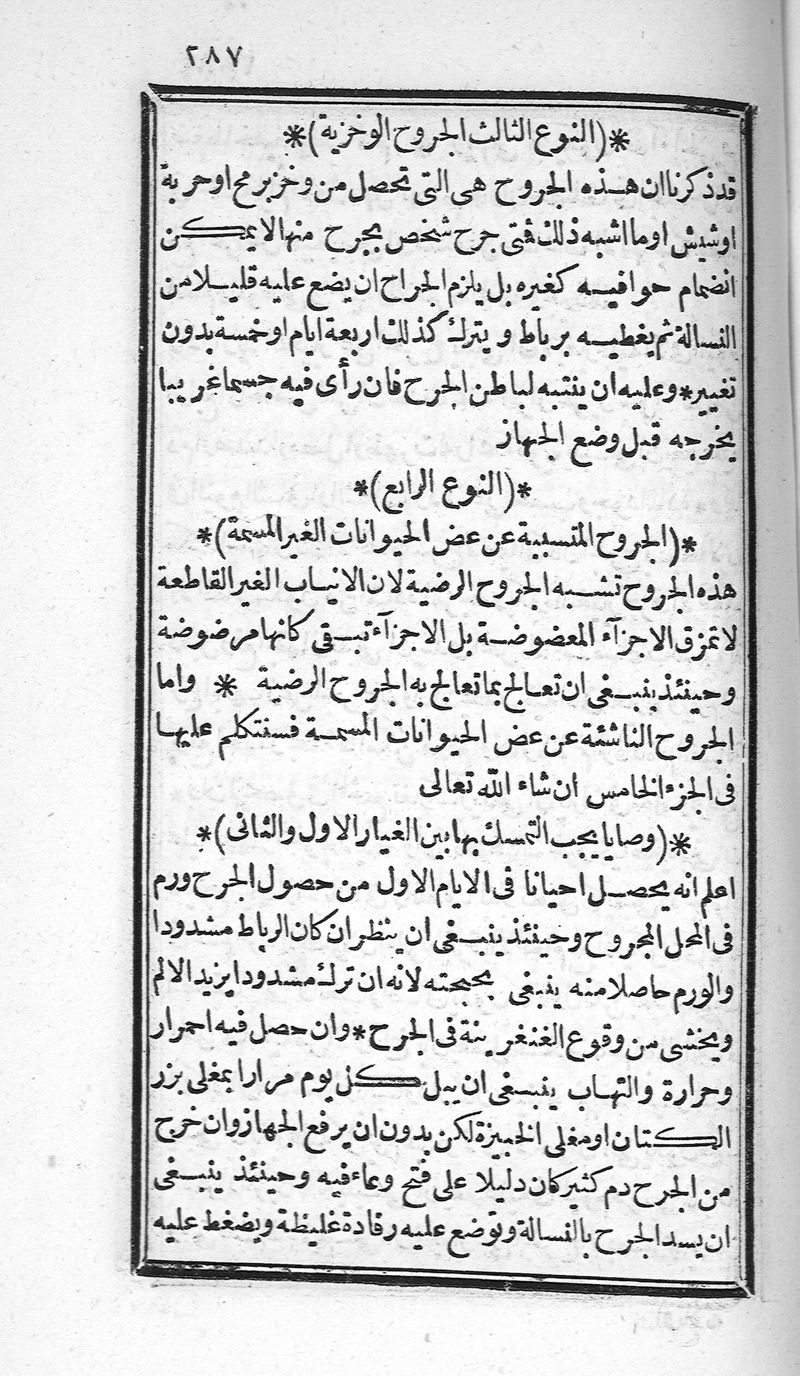 ٢٨٧
*(النوع الثالث الجروح الوخزية)*
قدذكرناان هذه الجروح هى التى تحصل من وخزبرمح اوحربة
اوشيش اومااشبه ذلك فمتى جرح شخص بجرح منهالايمكن
انضمام حوافيه كغيره بل يلزم الجراح ان يضع عليه قليلا من
النسالة ثم يغطيه برباط ويترك كذلك اربعة ايام اوخمسة بدون
تغيير*وعليه ان ينتبه لباطن الجرح فان رأى فيه جسماغريبا
يخرجه قبل وضع الجهاز
*(النوع الرابع)*
*(الجروح المتسببة عن عض الحيوانات الغير المسمة)*
هذه الجروح تشبه الجروح الرضية لان الانياب الغير القاطعة
لاتمزق الاجزآء المعضوضة بل الاجزآء تبقى كانهامرضوضة
وحينئذ ينبغى ان تعالج بماتعالج به الجروح الرضية * واما
الجروح الناشئة عن عض الحيوانات المسمة فسنتكلم عليها
فى الجزء الخامس ان شاء الله تعالى
*(وصايايجب التمسك بهابين الغيار الاول والثانى)*
اعلم انه يحصل احيانا فى الايام الاول من حصول الجرح ورم
فى المحل المجروح وحينئذ ينبغى ان ينظر ان كان الرباط مشدودا
والورم حاصلا منه ينبغى بحبحته لانه ان ترك مشدودا يزيد الالم
ويخشى من وقوع الغنغرينة فى الجرح*وان حصل فيه احمرار
وحرارة والتهاب ينبغى ان يبل كل يوم مرارا بمغلى بزر
الكتان اومغلى الخبيزة لكن بدون ان يرفع الجهاز وان خرج
من الجرح دم كثير كان دليلا على فتح وعاء فيه وحينئذ ينبغى
ان يسد الجرح بالنسالة وتوضع عليه رفادة غليظة ويضغط عليه